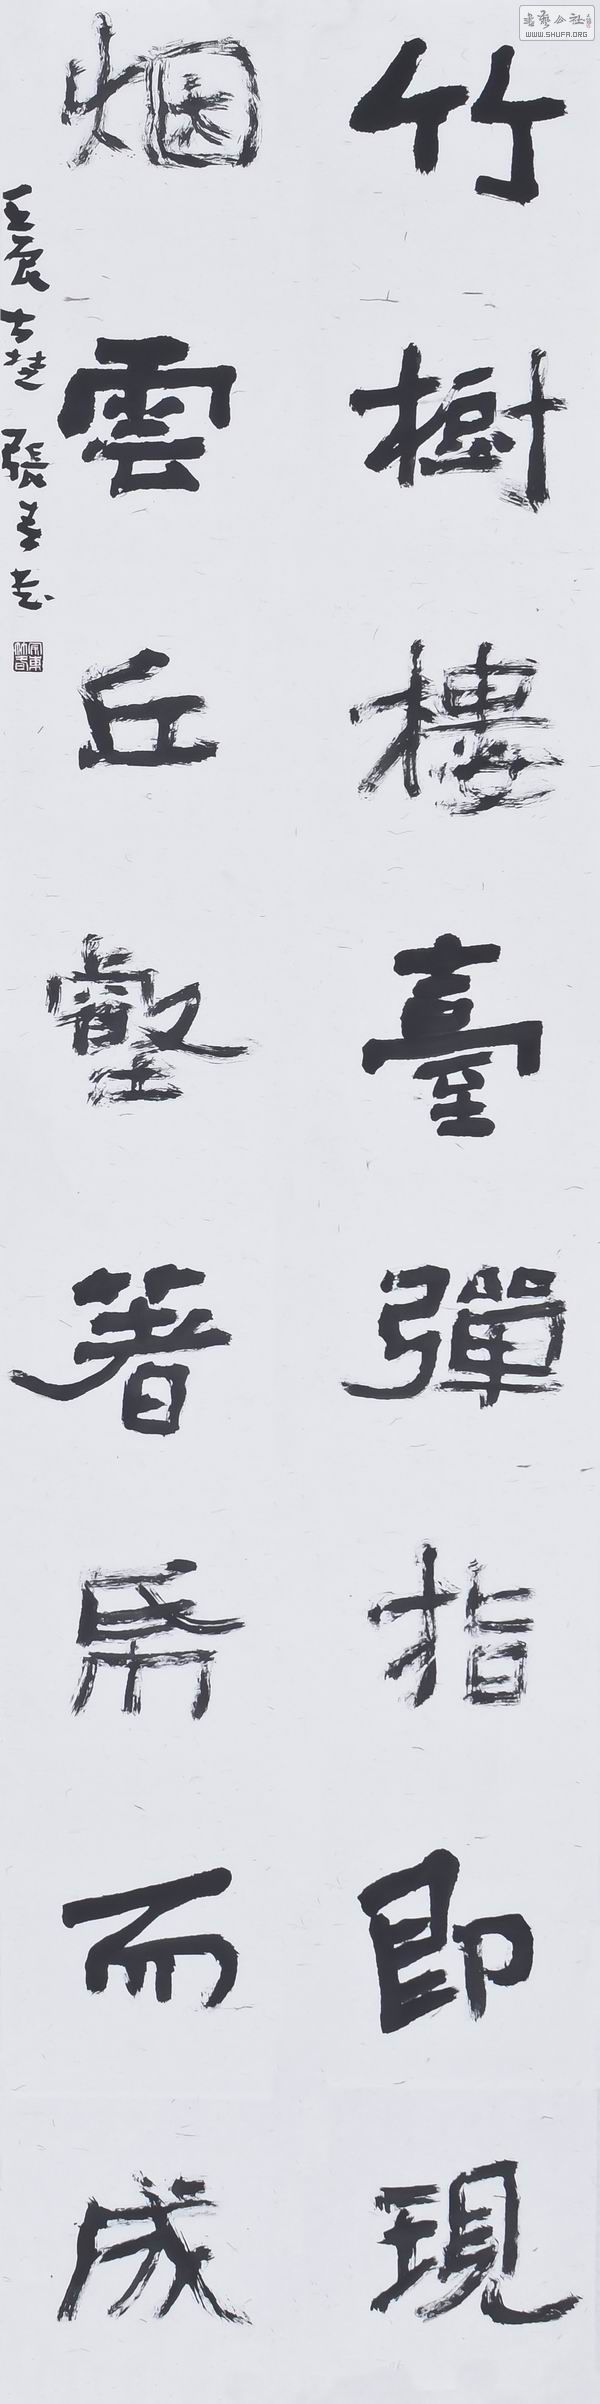 竹樹樓臺彈指即現
烟雲丘壑著帋而成
壬辰古楚張
書法公社
WWW.SHUFA.ORG